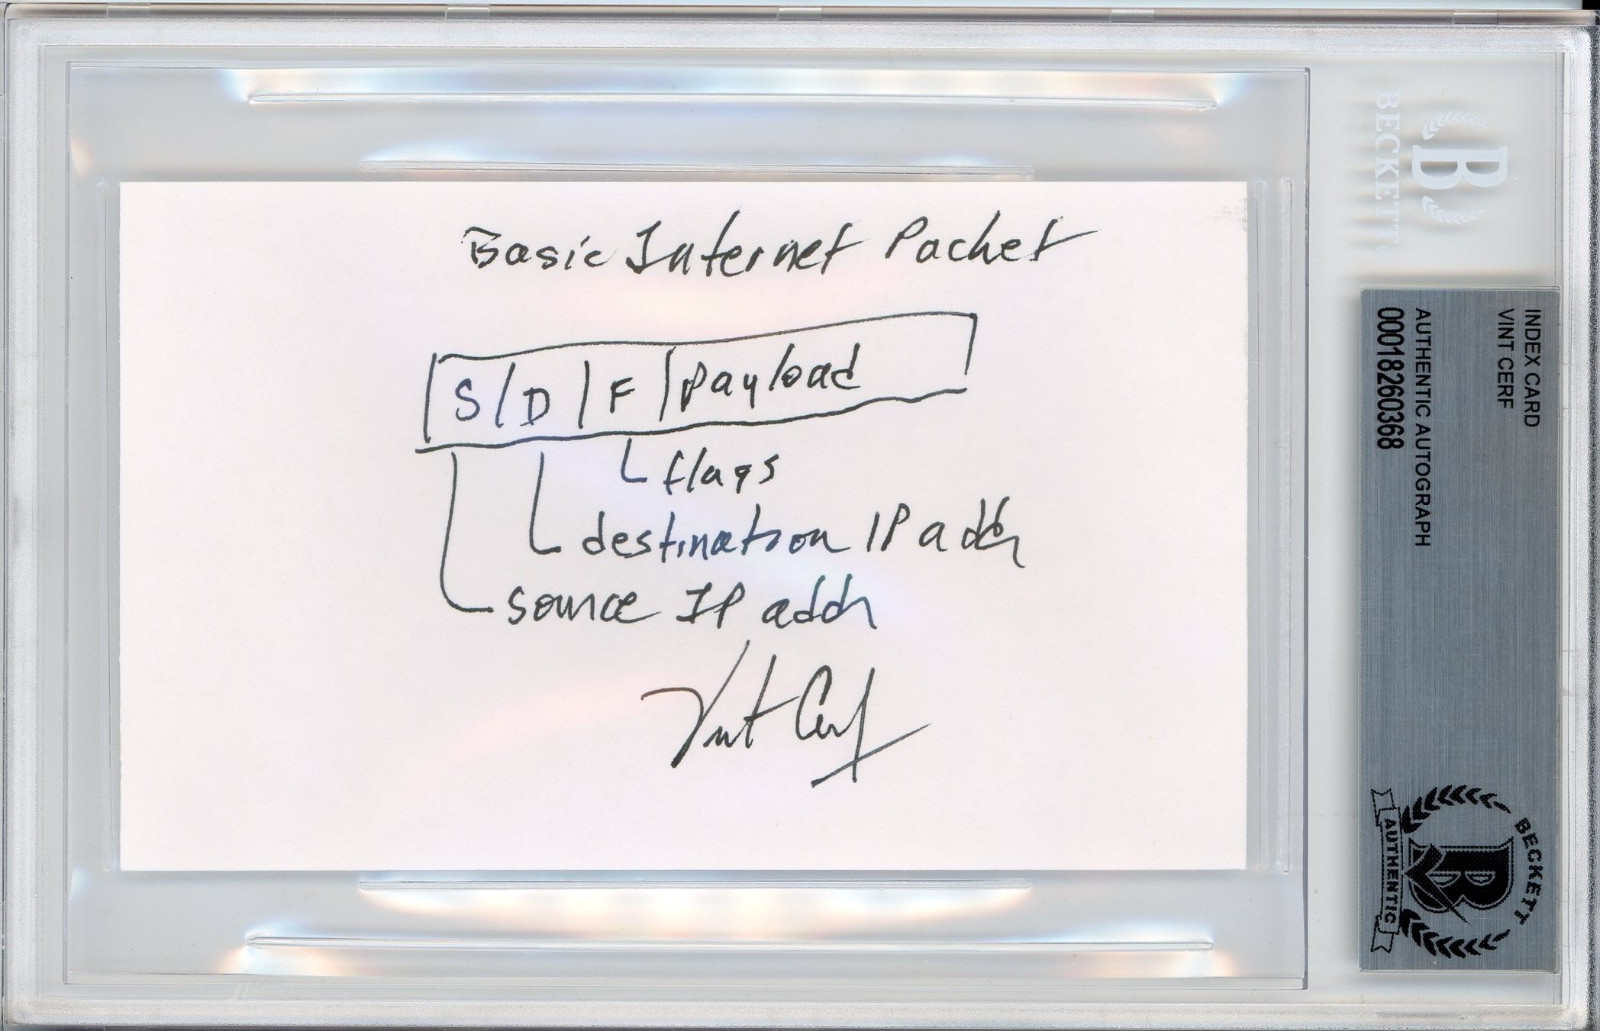 Basic Internet Packet
S D F payload
flags
destination IP addr
source IP addr
Vint Cerf
BECKETT
B
INDEX CARD
VINT CERF
AUTHENTIC AUTOGRAPH
00018260368
BECKETT
B
AUTHENTIC